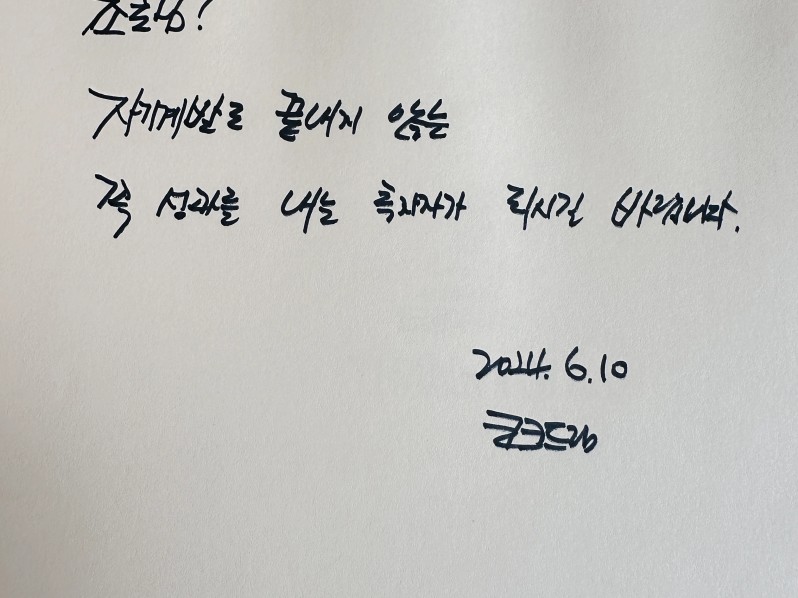 자기계발로 끝내지 않는
꼭 성과를 내는 투자자가 되시길 바랍니다.
2024. 6.10
코크드림